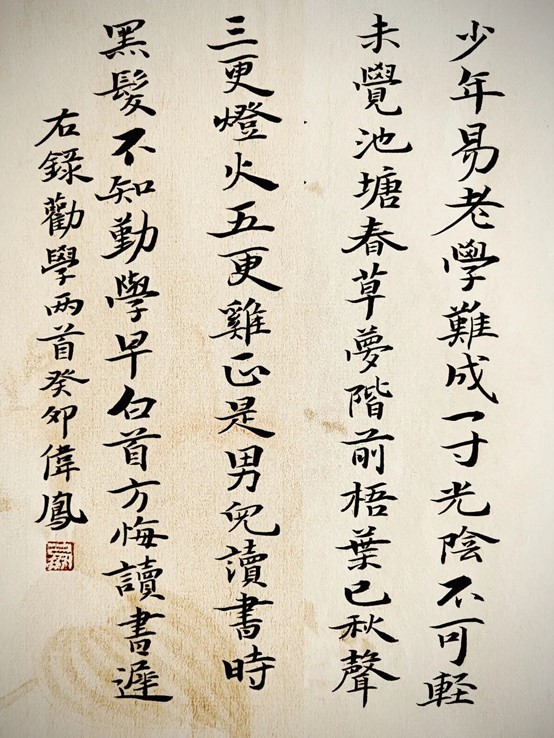 少年易老學難成一寸光陰不可軽
未覺池塘春草夢階前梧葉已秋聲
三更燈火五更雞正是男兒讀書時
黑髮不知勤學早白首方悔讀書遲
右錄勸學兩首癸卯偉鳳